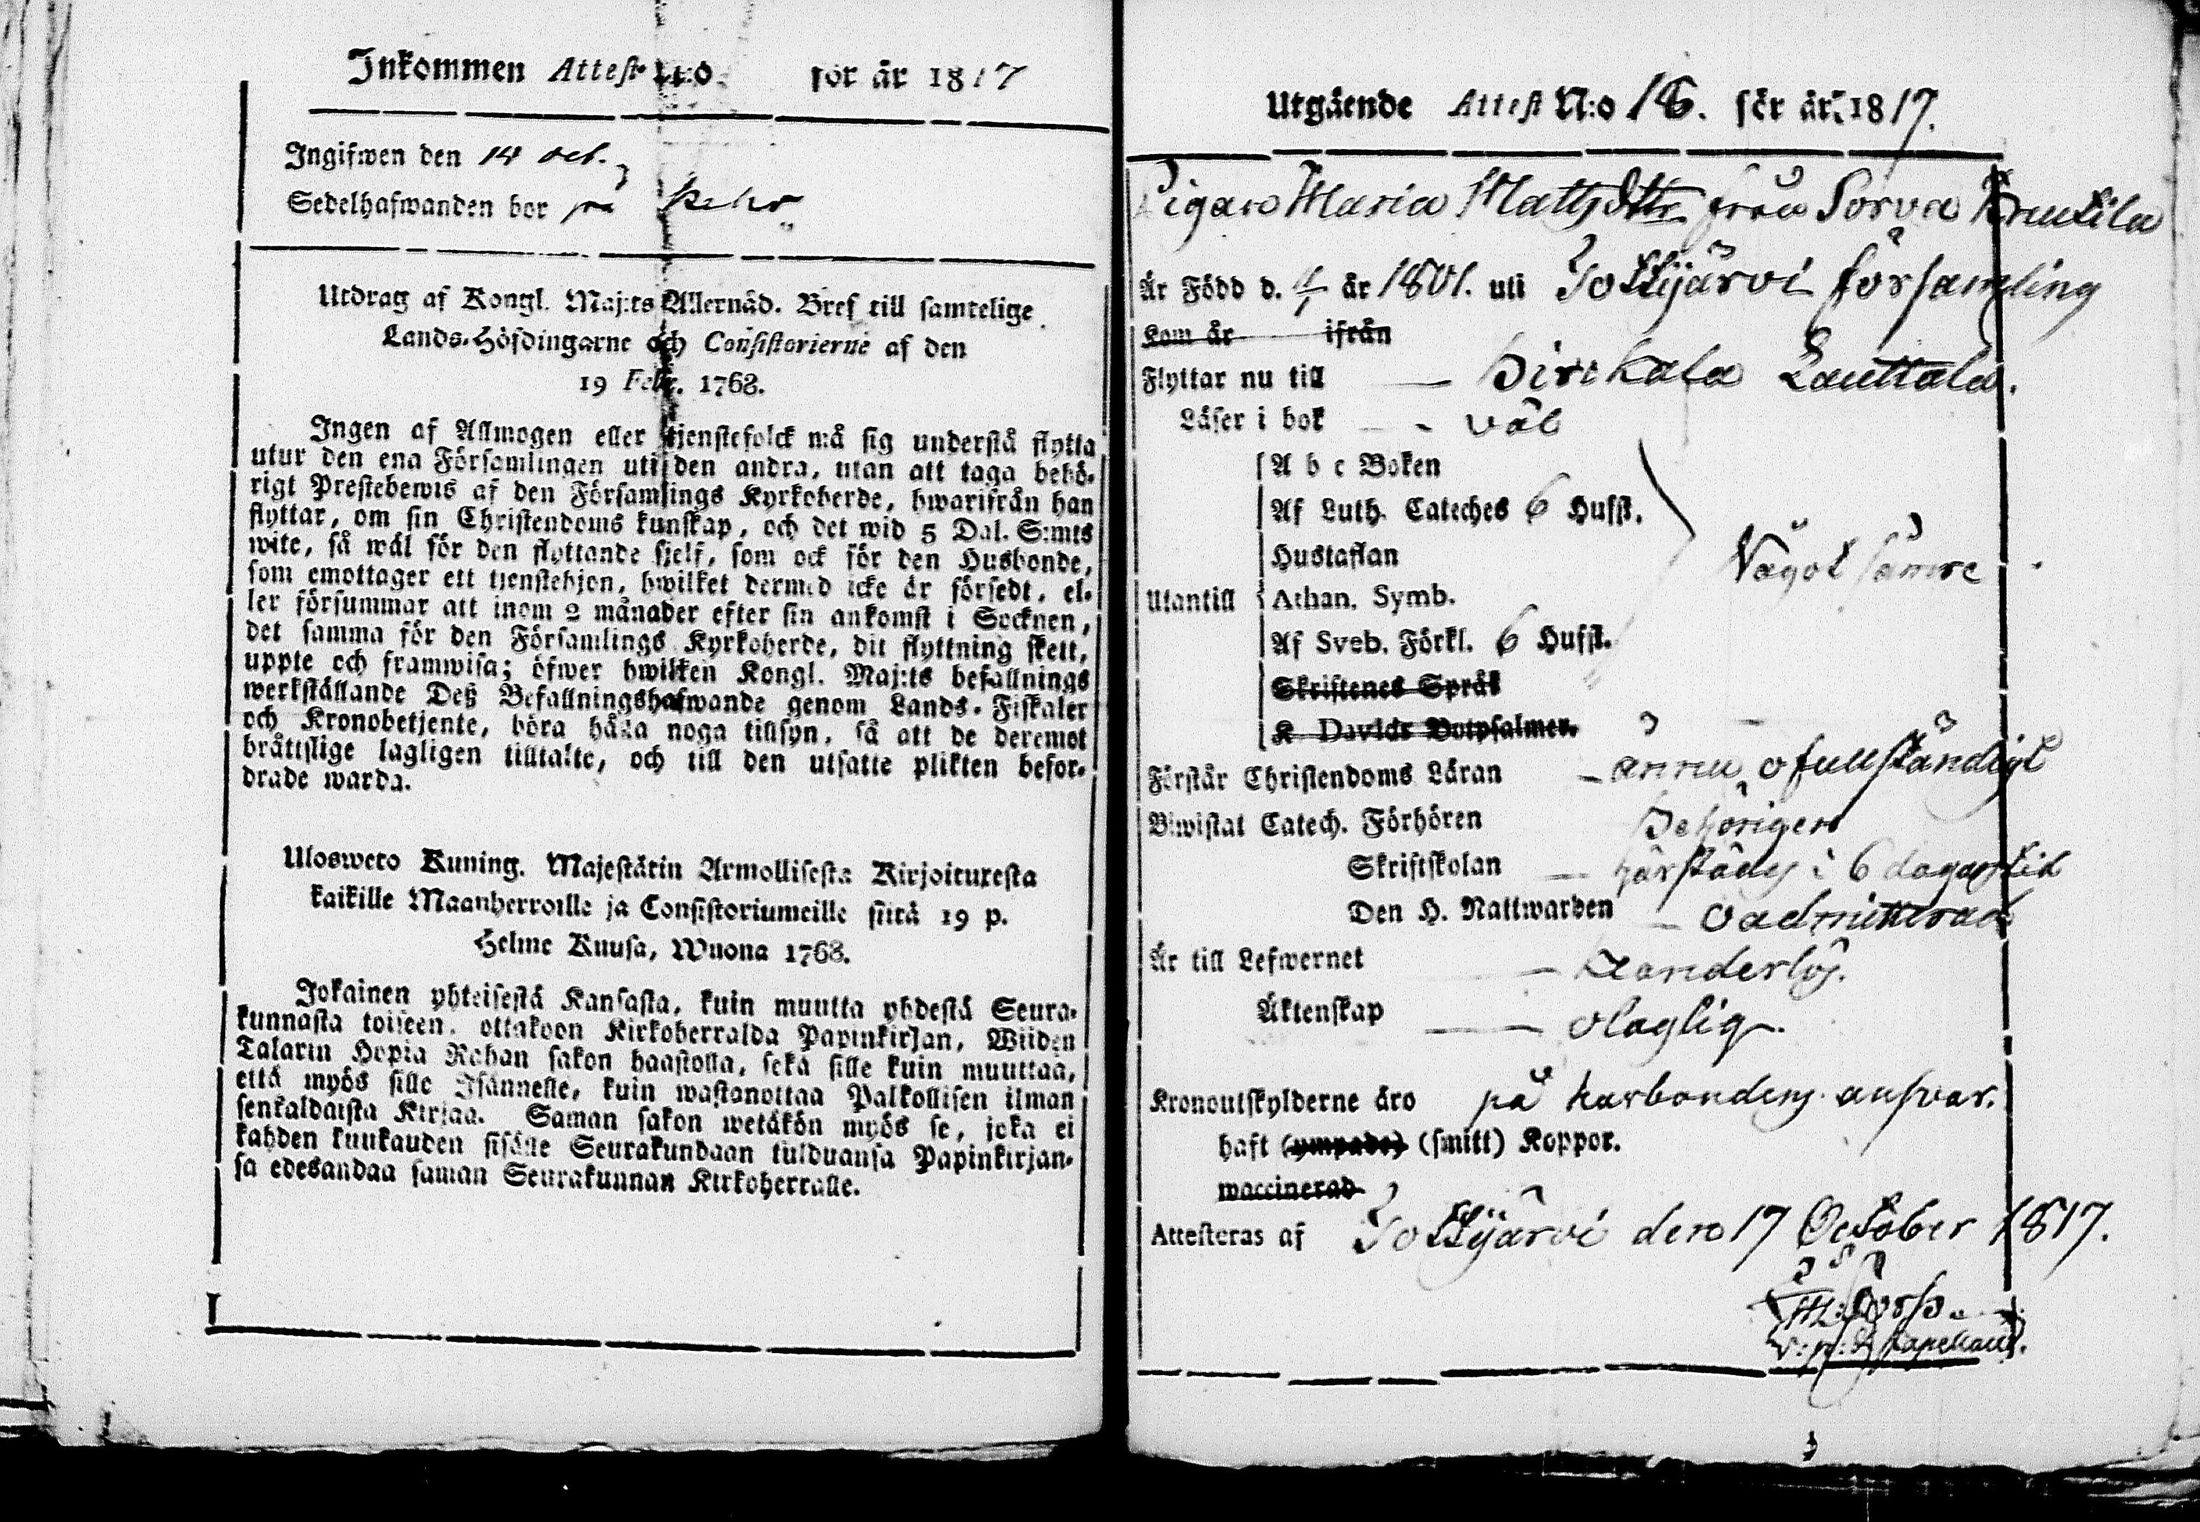 Inkommen Attest N:o för år 1817
Ingifwen den 14 oct.
Sedelhafwanden bor på
Utdrag af Kongl. Maj:ts Allernåd. Bref till samtelige
Lands-Höfdingarne och Consistorierne af den
19 Febr. 1768.
Ingen af Allmogen eller tjenstefolck må sig understå flytta
utur den ena Församlingen uti den andra, utan att taga behö-
rigt Prestebewis af den Församlings Kyrkoherde, hwarifrån han
flyttar, om sin Christendoms kunskap, och det wid 5 Dal. S:mts
wite, så wäl för den flyttande sjelf, som ock för den Husbonde,
som emottager ett tjenstehjon, hwilket dermed icke är försedt, el-
ler försummar att inom 2 månader efter sin ankomst i Socknen,
det samma för den Församlings Kyrkoherde, dit flyttning skett,
uppte och framwisa; öfwer hwilken Kongl. Maj:ts befallnings
werkställande Deß Befallningshafwande genom Lands-Fiskaler
och Kronobetjente, böra hålla noga tillsyn, så att de deremot
bråttslige lagligen tilltalte, och till den utsatte plikten befor-
drade warda.
Ulosweto Kuning. Majestätin Armollisesta Kirjoituxesta
kaikille Maanherroille ja Consistoriumeille siitä 19 p.
Helme Kuusa, Wuona 1768.
Jokainen yhteisestä Kansasta, kuin muutta yhdestä Seura-
kunnasta toiseen, ottakoon Kirkoherralda Papinkirjan, Wiiden
Talarin Hopia Rahan sakon haastolla, sekä sille kuin muuttaa,
että myös sille Isännelle, kuin wastanottaa Palkollisen ilman
senkaldaista Kirjaa. Saman sakon wetäkön myös se, joka ei
kahden kuukauden sisälle Seurakundaan tulduansa Papinkirjan-
sa edesandaa saman Seurakunnan Kirkoherralle.
Utgående Attest N:o 16. för år 1817.
Pigan Maria Mattsdttr från Sorva Knutila
Är Född d. år 1801. uti Tottijärvi församling
Kom år ifrån
Flyttar nu till Birckala Lauttala.
Läser i bok väl
A b c Boken
Af Luth. Cateches 6 Hufst.
Hustaflan
Något sämre
Utantill Athan. Symb.
Af Sveb. Förkl. 6 Hufst.
Skriftenes Språk
K Davids Botpsalmer.
Förstår Christendoms Läran ännu ofullständigt
Biwistat Catech. Förhören behörigen
Skriftskolan härstädes i 6 dagars tid
Den H. Nattwarden oadmitterad
Är till Lefwernet klanderlös.
Äktenskap olaglig.
Kronoutskylderne äro på husbondens answar.
haft (ympade) (smitt) Koppor.
waccinerad
Attesteras af Tottijärvi den 17 October 1817.